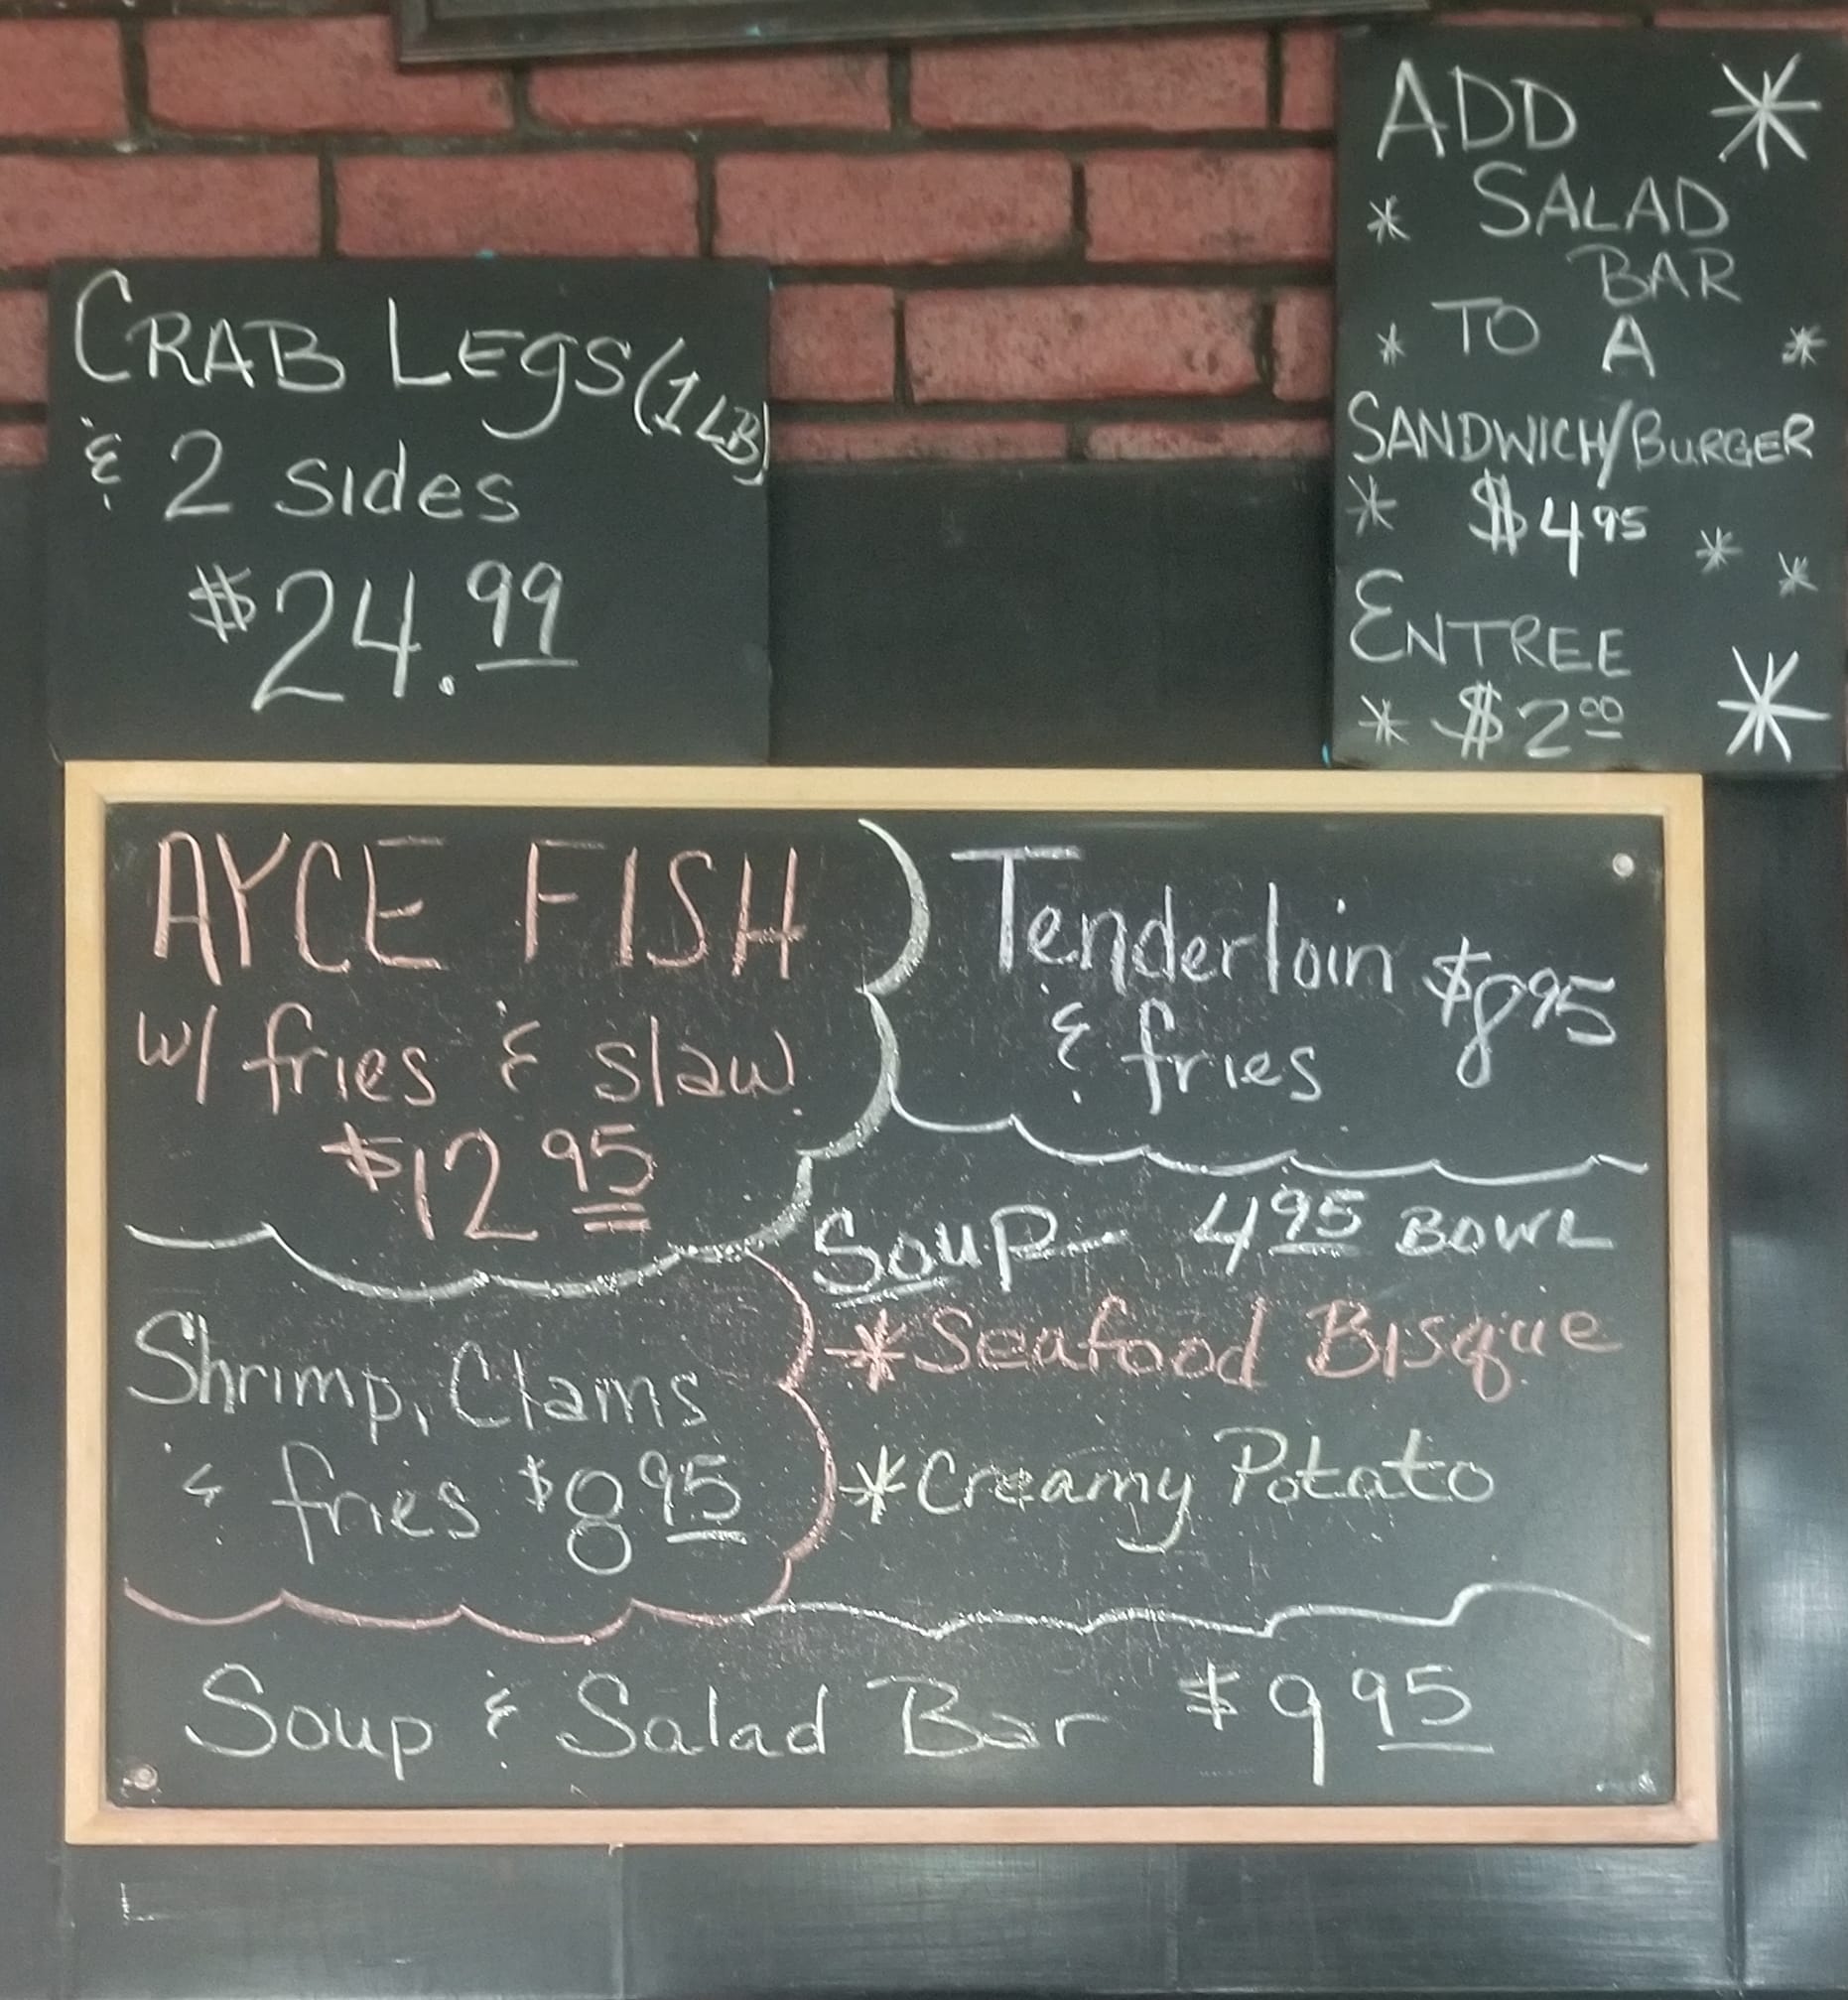 CRAB LEgS (1 LB)
& 2 sides
$24.99
ADD
SALAD
BAR
TO A
SANDWICH/BURGER
$4 95
ENTREE
$2 00
AYCE FISH
w/ fries & slaw
$12 95
Tenderloin $8 95
& fries
Soup - 4 95 BOWL
*Seafood Bisque
*Creamy Potato
Shrimp, Clams
& fries $8 95
Soup & Salad Bar $9 95